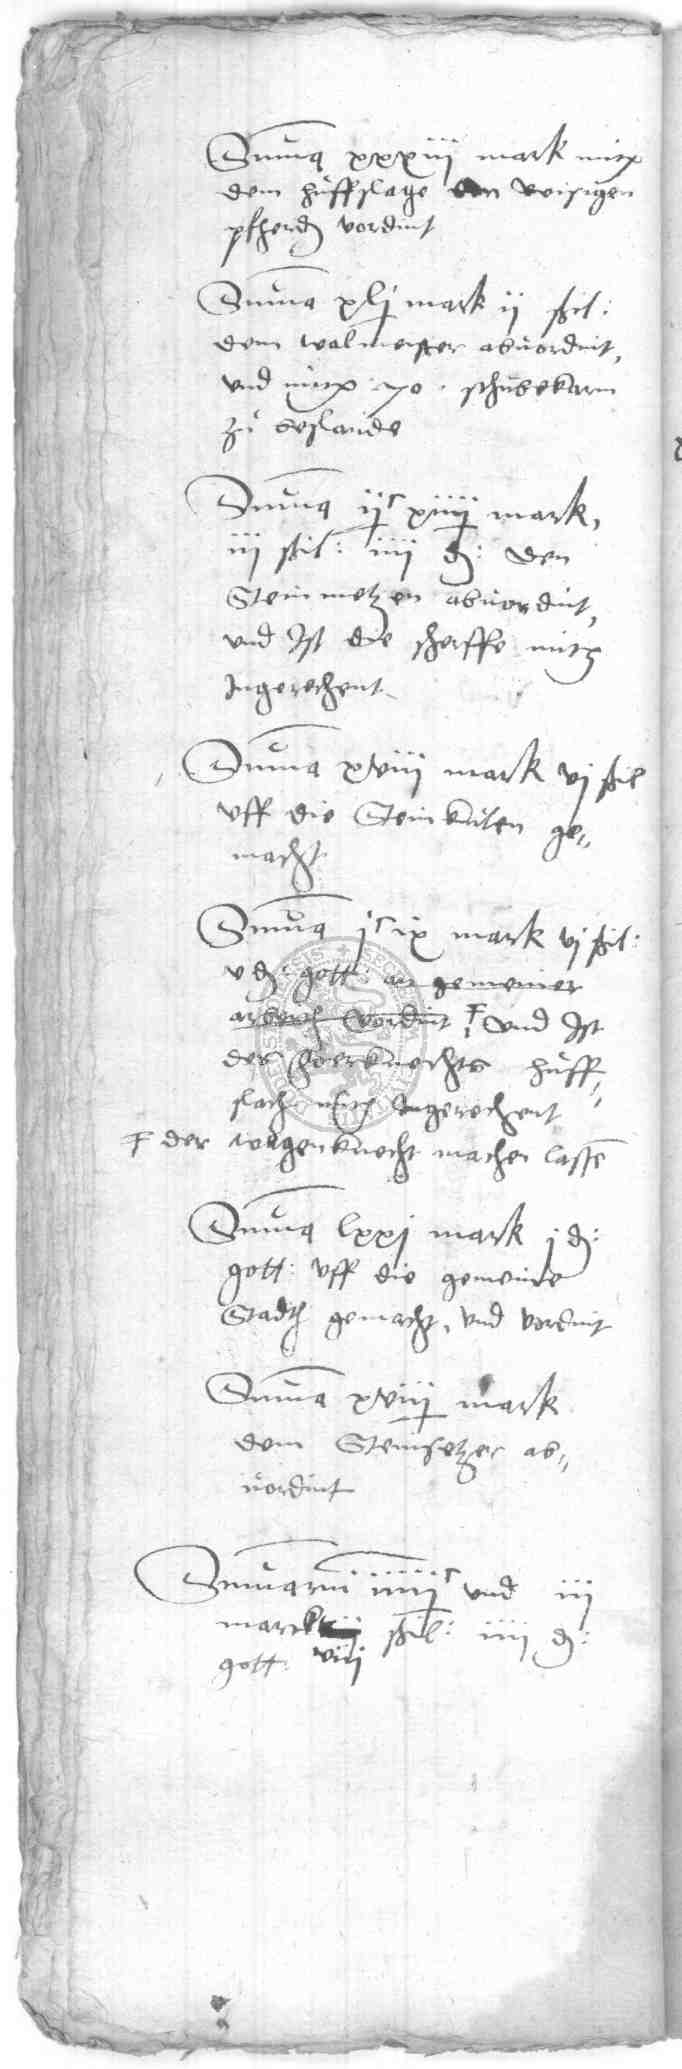 Summa xxxiij mark mitt
dem huffslage den reisigen
pfherd vordint
Summa xlj mark ij ßil:
dem walmeister abuordint,
vnd mitt 70. schubekarn
zu beslande
Summa ijc xiiij mark,
iij ßil: iiij d: den
Steinmetzen abuordint,
vnd Ist die scherffe mitt
Ingerechent
Summa xviij mark vj ßil
vff die Steinkulen ge-
macht
Summa jc ix mark vj ßil:
v d: gott: an gemeiner
arbeyt vordint F vnd Ist
der knechts huff-
slach mitt Ingerechent
F der wagenknecht machen lassen
Summa lxxj mark j d:
gott: vff die gemeine
Stadt gemacht, vnd vordint
Summa xviij mark
dem Steinsetzer ab-
uordint
Summarum vnd iij
marck ßil: iiij d:
gott viij